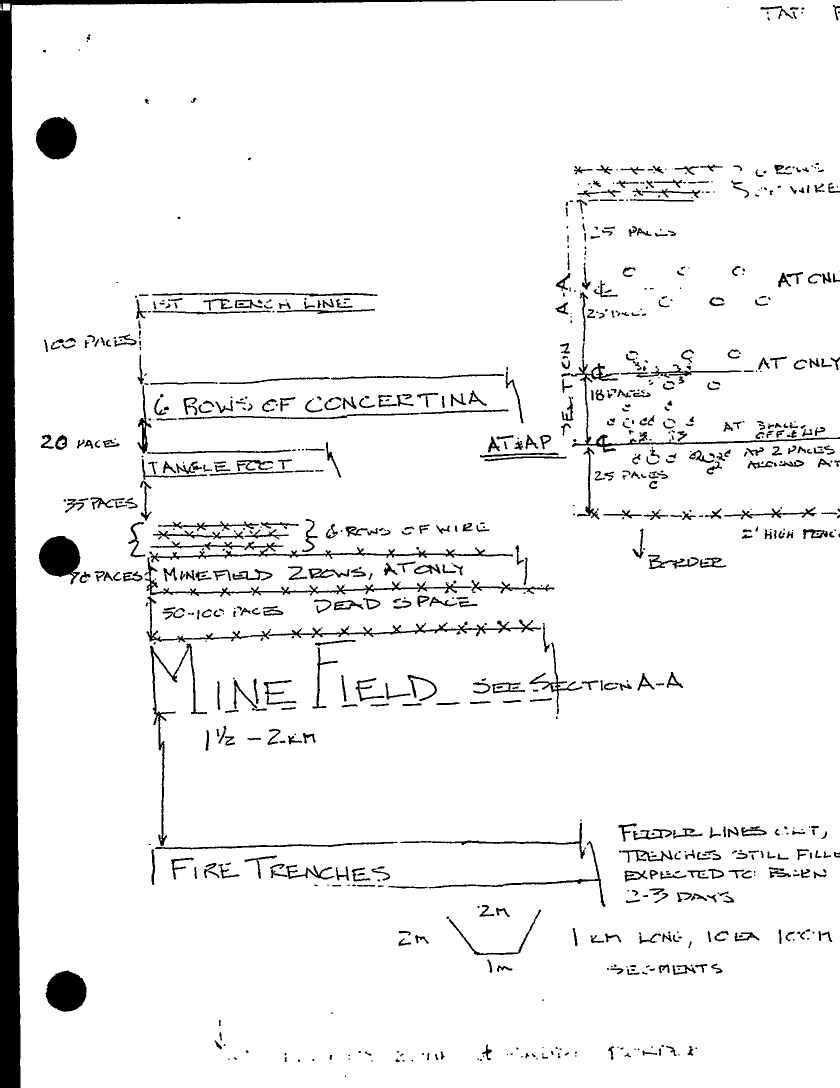 TAP
6 ROWS
WIRE
25 PACES
AT ONL
1ST TRENCH LINE
SECTION A-A
100 PACES
AT ONLY
6 ROWS OF CONCERTINA
18 PACES
20 PACES
AT & AP
AT
TANGLEFOOT
AP 2 PACES
AROUND AT
25 PACES
35 PACES
6 ROWS OF WIRE
2' HIGH FENC
BORDER
70 PACES
MINEFIELD 2 ROWS, AT ONLY
50-100 PACES DEAD SPACE
MINE FIELD SEE SECTION A-A
1 1/2 - 2 KM
FEEDER LINES CUT,
TRENCHES STILL FILLE
FIRE TRENCHES
EXPECTED TO BURN
2-3 DAYS
2M
2M
1 KM LONG, 10 EA 100M
1M
SEGMENTS